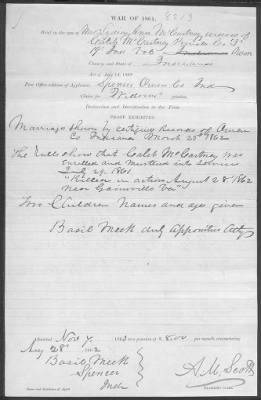 WAR OF 1861.
8213
Brief in the case of Mrs Lydia Ann McCartney, widow of
Caleb McCartney Private Co "F"
19" Ind Vols
County and State of Indiana
Act of July 14, 1862
Post Office address of Applicant: Spencer Owen Co Ind
Claim for "Widow" pension.
Declaration and Identification in due Form.
PROOF EXHIBITED.
Marriage shown by certified records of Owen
Co Indiana March 25" 1862
The Rolls show that Caleb McCartney was
Enrolled and Mustered into Service
July 29. 1861
"Killed in action August 28" 1862
near Gainsville Va"
Two Children Names and age given
Basil Meek duly Appointed Atty
Admitted Nov 7, 1863 of $ 8.00 per month, commencing
Aug 28" 1862
Basil Meek
Spencer
Ind
A.M. Scott
EXAMINING CLERK.
Name and Residence of Agent.